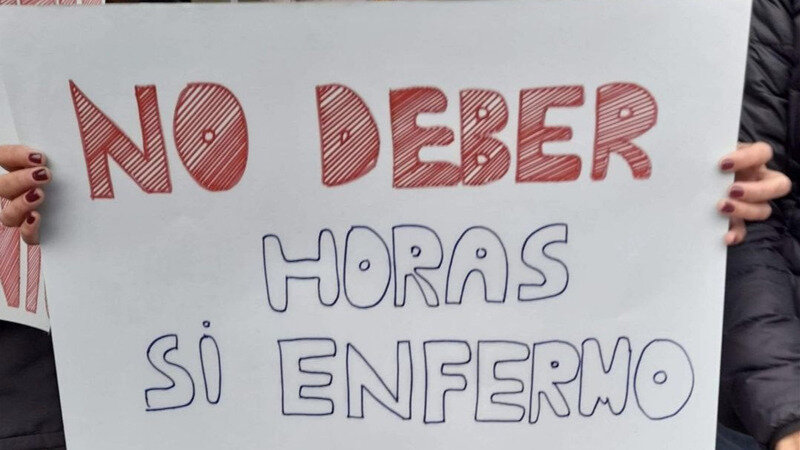 NO DEBER
HORAS
Si ENFERMO